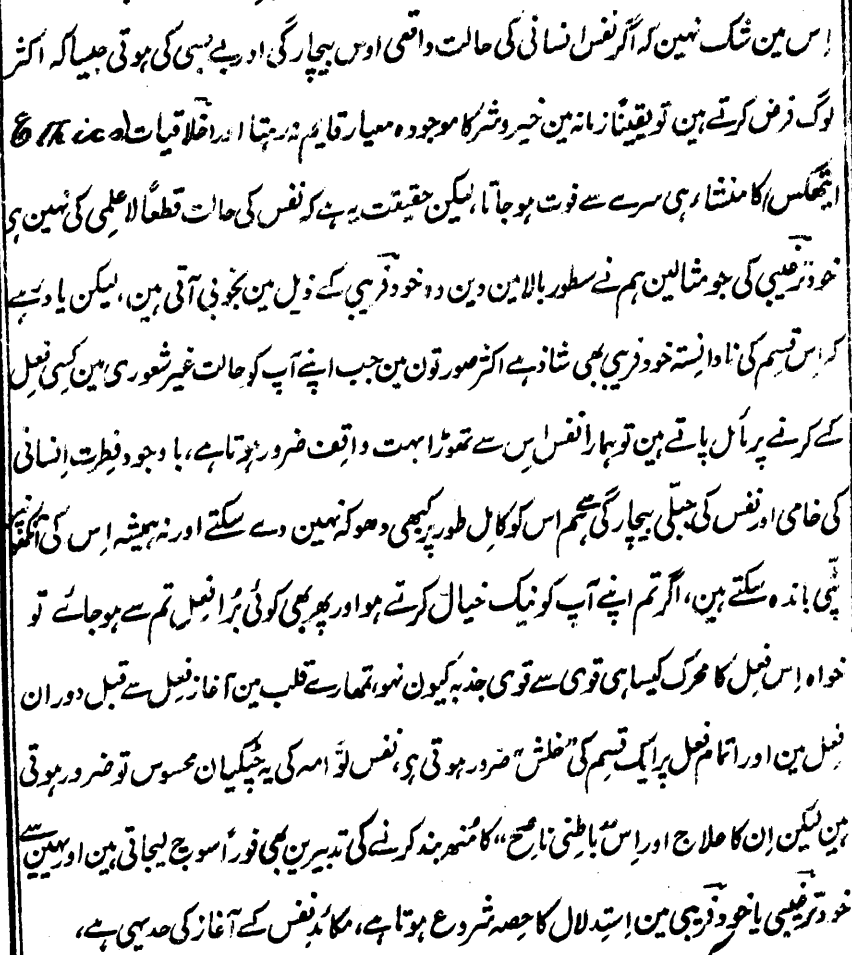 اِس مین شک نہین کہ اگر نفس انسانی کی حالت واقعی اوس بیچارگی اور بے بسی کی ہوتی جیسا کہ اکثر
لوگ فرض کرتے ہین تو یقیناً زمانہ مین خیر و شر کا موجودہ معیار قایم نہ رہتا اور اخلاقیات (Ethics
ایتھکس) کا منشاء ہی سرے سے فوت ہو جاتا، لیکن حقیقت یہ ہے کہ نفس کی حالت قطعاً لاعلمی کی نہین ہی
خود ترغیبی کی جو مثالین ہم نے سطور بالا مین دین وہ خود فریبی کے ذیل مین بخوبی آتی ہین، لیکن یاد رہے
کہ اِس قسم کی نادانستہ خود فریبی بھی شاذ ہے اکثر صورتون مین جب اپنے آپ کو حالت غیر شعوری مین کسی فعل
کے کرنے پر مائل پاتے ہین تو ہمارا نفس اِس سے تھوڑا بہت واقف ضرور ہوتا ہے، باوجود فطرت اِنسانی
کی خامی اور نفس کی جبلّی بیچارگی کے ہم اس کو کامل طور پر کبھی دھوکہ نہین دے سکتے اور نہ ہمیشہ اِس کی آنکھون پر
پٹّی باندھ سکتے ہین، اگر تم اپنے آپ کو نیک خیال کرتے ہو اور پھر بھی کوئی بُرا فعل تم سے ہو جائے تو
خواہ اِس فعل کا محرک کیسا ہی قوی سے قوی جذبہ کیون نہو، تمھارے قلب مین آغاز فعل سے قبل دوران
فعل مین اور اتمام فعل پر ایک قسم کی "خلش" ضرور ہوتی ہی، نفس لوّامہ کی یہ چٹکیان محسوس تو ضرور ہوتی
ہین لیکن اِن کا علاج اور اِس "باطنی ناصح" کا مُنھ بند کرنے کی تدبیرین بھی فوراً سوچ لیجاتی ہین اور یہین سے
خود ترغیبی یا خود فریبی مین اِستدلال کا حصہ شروع ہوتا ہے، مکائد نفس کے آغاز کی حد یہی ہے،